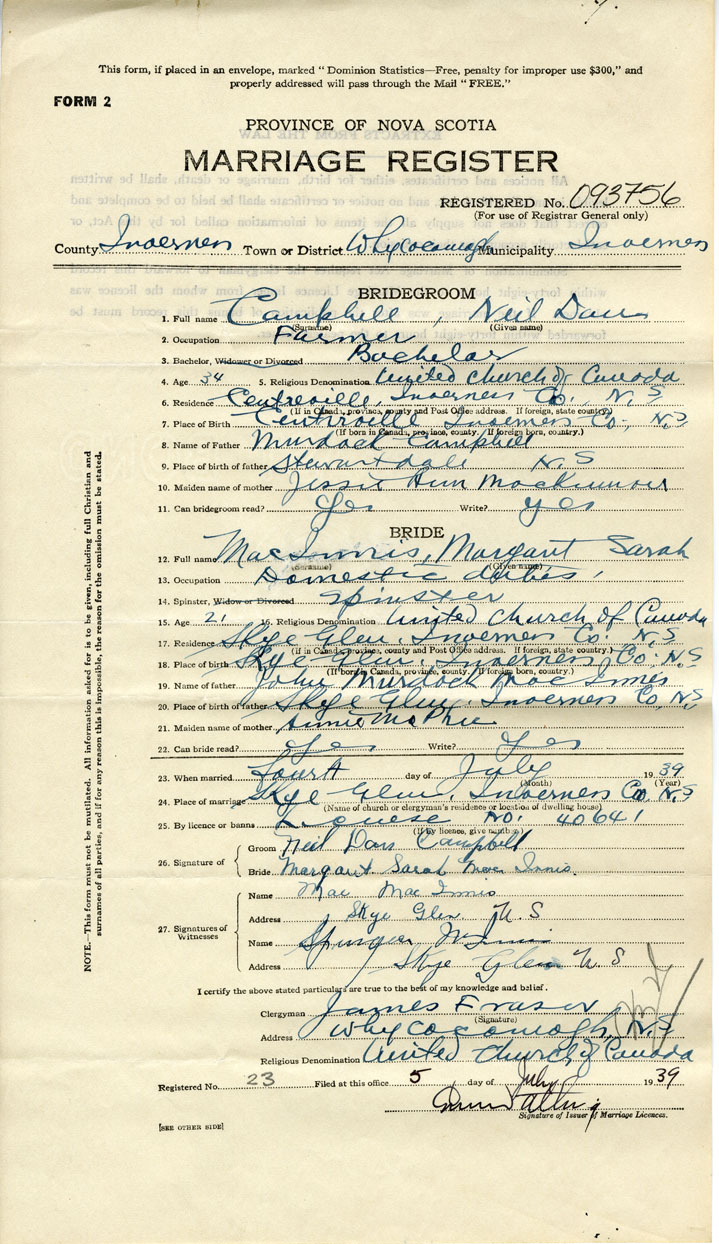 This form, if placed in an envelope, marked "Dominion Statistics—Free, penalty for improper use $300," and
properly addressed will pass through the Mail "FREE."
FORM 2
PROVINCE OF NOVA SCOTIA
MARRIAGE REGISTER
REGISTERED No. 093756
(For use of Registrar General only)
County Inverness Town or District Whycocomagh Municipality Inverness
BRIDEGROOM
1. Full name Campbell, Neil Dan
(Surname) (Given name)
2. Occupation Farmer
3. Bachelor, Widower or Divorced Bachelor
4. Age 34 5. Religious Denomination United Church of Canada
6. Residence Centreville, Inverness Co. N.S
(If in Canada, province, county and Post Office address. If foreign, state country.)
7. Place of Birth Centreville Inverness Co., N.S.
(If born in Canada, province, county. If foreign born, country.)
8. Name of Father Murdock Campbell
9. Place of birth of father Stewartdale N.S
10. Maiden name of mother Jessie Ann MacKinnon
11. Can bridegroom read? Yes Write? Yes
BRIDE
12. Full name MacInnis, Margaret Sarah
(Surname) (Given name)
13. Occupation Domestic duties
14. Spinster, Widow or Divorced Spinster
15. Age 21 16. Religious Denomination United Church of Canada
17. Residence Skye Glen, Inverness Co. N.S
(if in Canada, province, county and Post Office address. If foreign, state country.)
18. Place of birth Skye Glen, Inverness Co. N.S
(If born in Canada, province, county. If foreign born, country.)
19. Name of father John Murdock MacInnes
20. Place of birth of father Skye Glen, Inverness Co. N.S
21. Maiden name of mother Annie McPhie
22. Can bride read? Yes Write? Yes
23. When married Fourth day of July 1939
(Month) (Year)
24. Place of marriage Skye Glen, Inverness Co. N.S
(Name of church or clergyman's residence or location of dwelling house)
25. By licence or banns License No. 40641
(If by licence, give number)
26. Signature of Groom Neil Dan Campbell
Bride Margaret Sarah Mac Innis
27. Signatures of Witnesses
Name Mac Innis
Address Skye Glen. N.S
Name
Address Skye Glen N.S
I certify the above stated particulars are true to the best of my knowledge and belief.
Clergyman James Fraser
(Signature)
Address Whycocomagh, N.S
Religious Denomination United Church of Canada
Registered No. 23 Filed at this office 5 day of July 1939
Signature of Issuer of Marriage Licences.
[SEE OTHER SIDE]
NOTE.—This form must not be mutilated. All information asked for is to be given, including full Christian and
surnames of all parties, and if for any reason this is impossible, the reason for the omission must be stated.